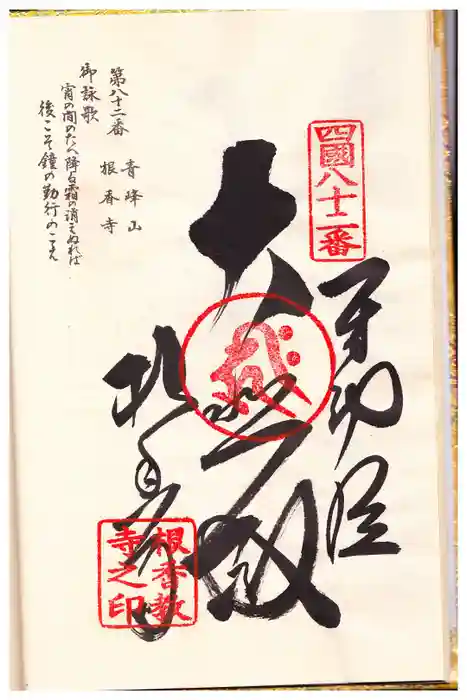 四國八十二番
奉納経
大悲殿
根香寺
根香教
寺之印
第八十二番 青峰山
根香寺
御詠歌
宵の間のたへ降る霜の消えぬれば
後こそ鐘の勤行のこえ